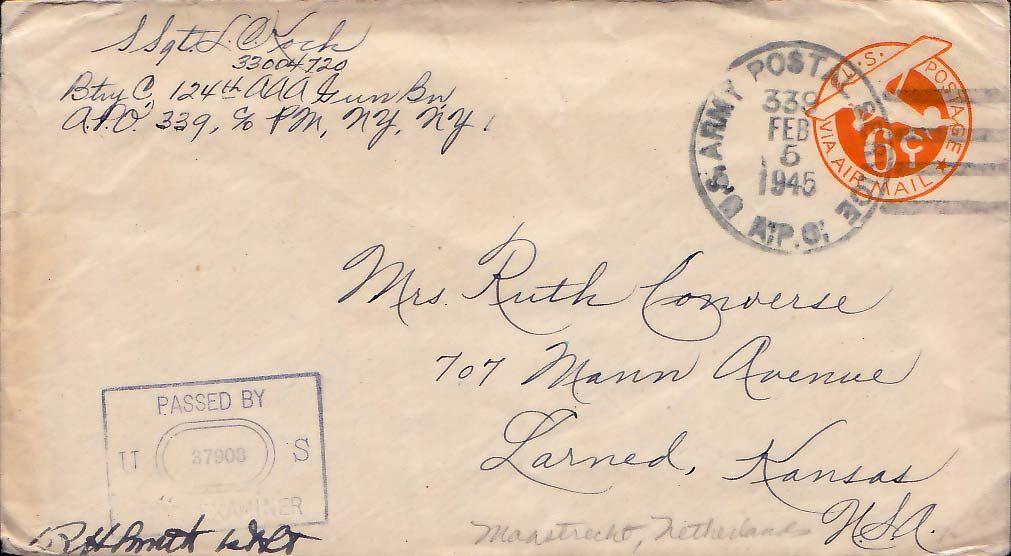 S Sgt L. C. Koch
33004720
Btry C, 124th AAA Gun Bn
A.P.O. 339, c/o PM, NY, NY.
U.S. ARMY POSTAL SERVICE
339
FEB
5
1945
A.P.O.
U.S. POSTAGE
6¢
VIA AIR MAIL
Mrs. Ruth Converse
707 Mann Avenue
Larned, Kansas
U.S.A.
PASSED BY
U 37908 S
EXAMINER
R H Smith 1st Lt
Maastricht, Netherlands